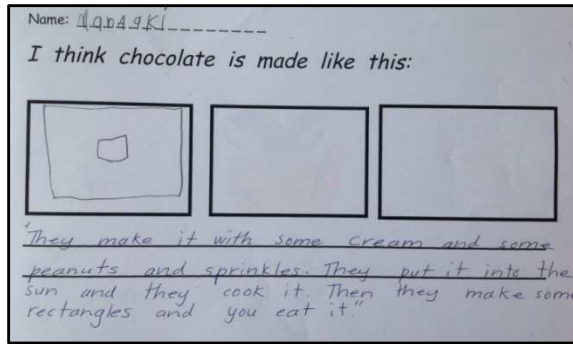 Name:
I think chocolate is made like this:
"They make it with some cream and some
peanuts and sprinkles. They put it into the
sun and they cook it. Then they make some
rectangles and you eat it."